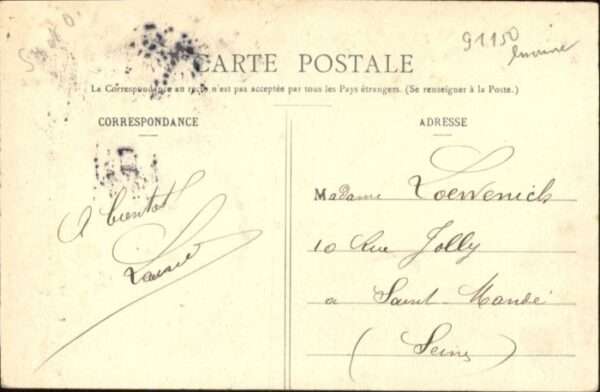 S. et O.
91150
CARTE POSTALE
La Correspondance au recto n'est pas acceptée par tous les Pays étrangers. (Se renseigner à la Poste.)
CORRESPONDANCE
ADRESSE
A bientot
Madame Loewenick
10 Rue Jolly
a Saint-Mandé
(Seine)